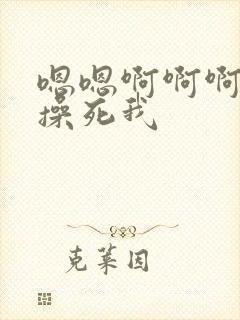 嗯嗯啊啊啊
操死我
克莱因